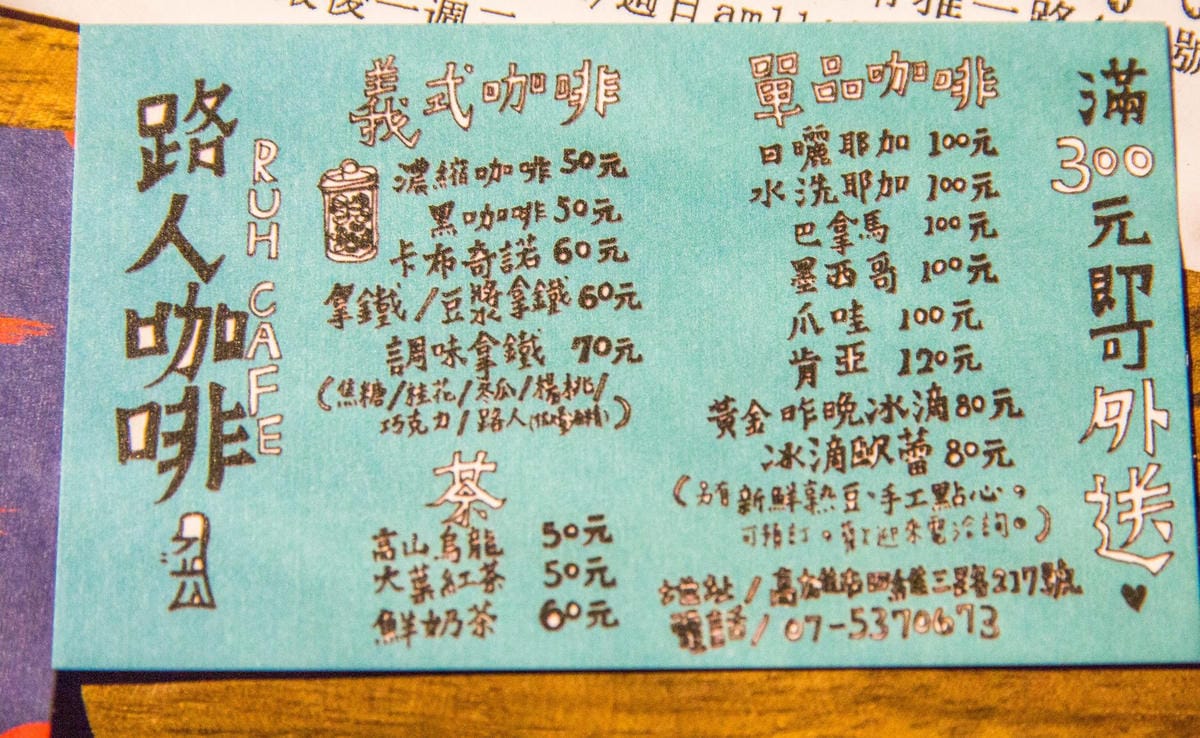 路人咖啡
RUH CAFE
義式咖啡
濃縮咖啡 50元
黑咖啡 50元
卡布奇諾 60元
拿鐵/豆漿拿鐵 60元
調味拿鐵 70元
(焦糖/桂花/冬瓜/楊桃/
巧克力/路人
茶
高山烏龍 50元
大葉紅茶 50元
鮮奶茶 60元
單品咖啡
日曬耶加 100元
水洗耶加 100元
巴拿馬 100元
墨西哥 100元
爪哇 100元
肯亞 120元
黃金昨晚冰滴 80元
冰滴歐蕾 80元
(另有新鮮熟豆、手工點心。
可預訂。歡迎來電洽詢。)
地址/高雄市四維三路217號
電話/07-5370673
滿300元即可外送